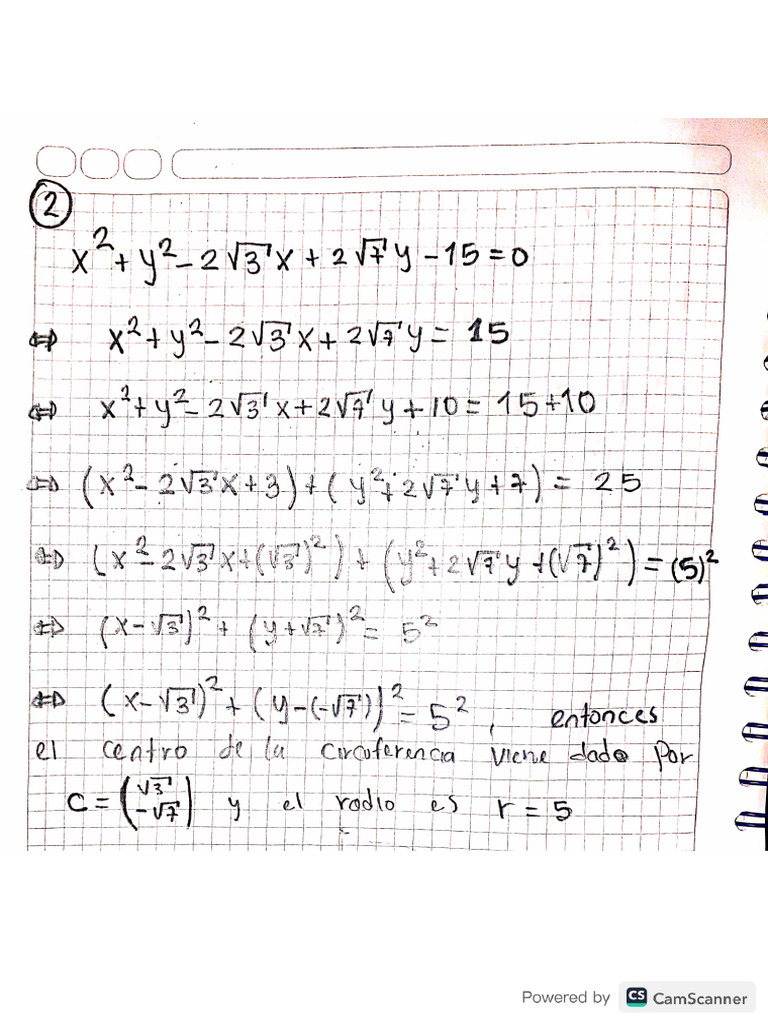 2
x² + y² - 2√3 x + 2√7 y - 15 = 0
⇔ x² + y² - 2√3 x + 2√7 y = 15
⇔ x² + y² - 2√3 x + 2√7 y + 10 = 15 + 10
⇔ (x² - 2√3 x + 3) + (y² + 2√7 y + 7) = 25
⇔ (x² - 2√3 x + (√3)²) + (y² + 2√7 y + (√7)²) = (5)²
⇔ (x - √3)² + (y + √7)² = 5²
⇔ (x - √3)² + (y - (-√7))² = 5², entonces
el centro de la circuferencia viene dado por
C = (√3 -√7) y el radio es r = 5
Powered by CS CamScanner